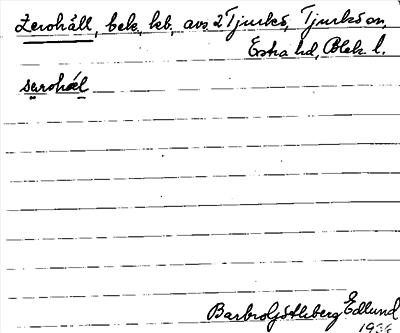 Zerohåll, bek., kb., avs. 2 Tjurkö, Tjurkö sn,
Östra hd, Blek. l.
serohål
Barbro Götheberg Edlund
1936